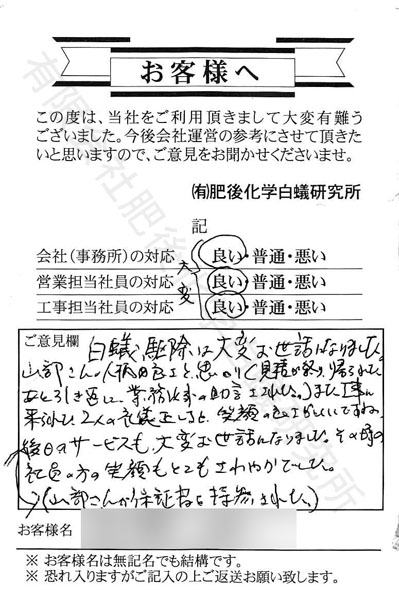 お客様へ
この度は、当社をご利用頂きまして大変有難う
ございました。今後会社運営の参考にさせて頂きた
いと思いますので、ご意見をお聞かせくださいませ。
㈲肥後化学白蟻研究所
記
会社(事務所)の対応 良い・普通・悪い
営業担当社員の対応 良い・普通・悪い
工事担当社員の対応 良い・普通・悪い
大変
ご意見欄 白蟻駆除は大変お世話になりました。
山部さんの人柄の良さと思いやり(見積が終り、帰られた
あと引き返し、業務以外の助言をされた。)また工事に
来られた2人の礼儀正しさと、笑顔の良さがいいですね。
後日のサービスも、大変お世話になりました。その時の
社員の方の笑顔もとてもさわやかでした。
(山部さんが保証書を持参された。)
お客様名
※ お客様名は無記名でも結構です。
※ 恐れ入りますがご記入の上ご返送お願い致します。
有限会社肥後化学白蟻研究所